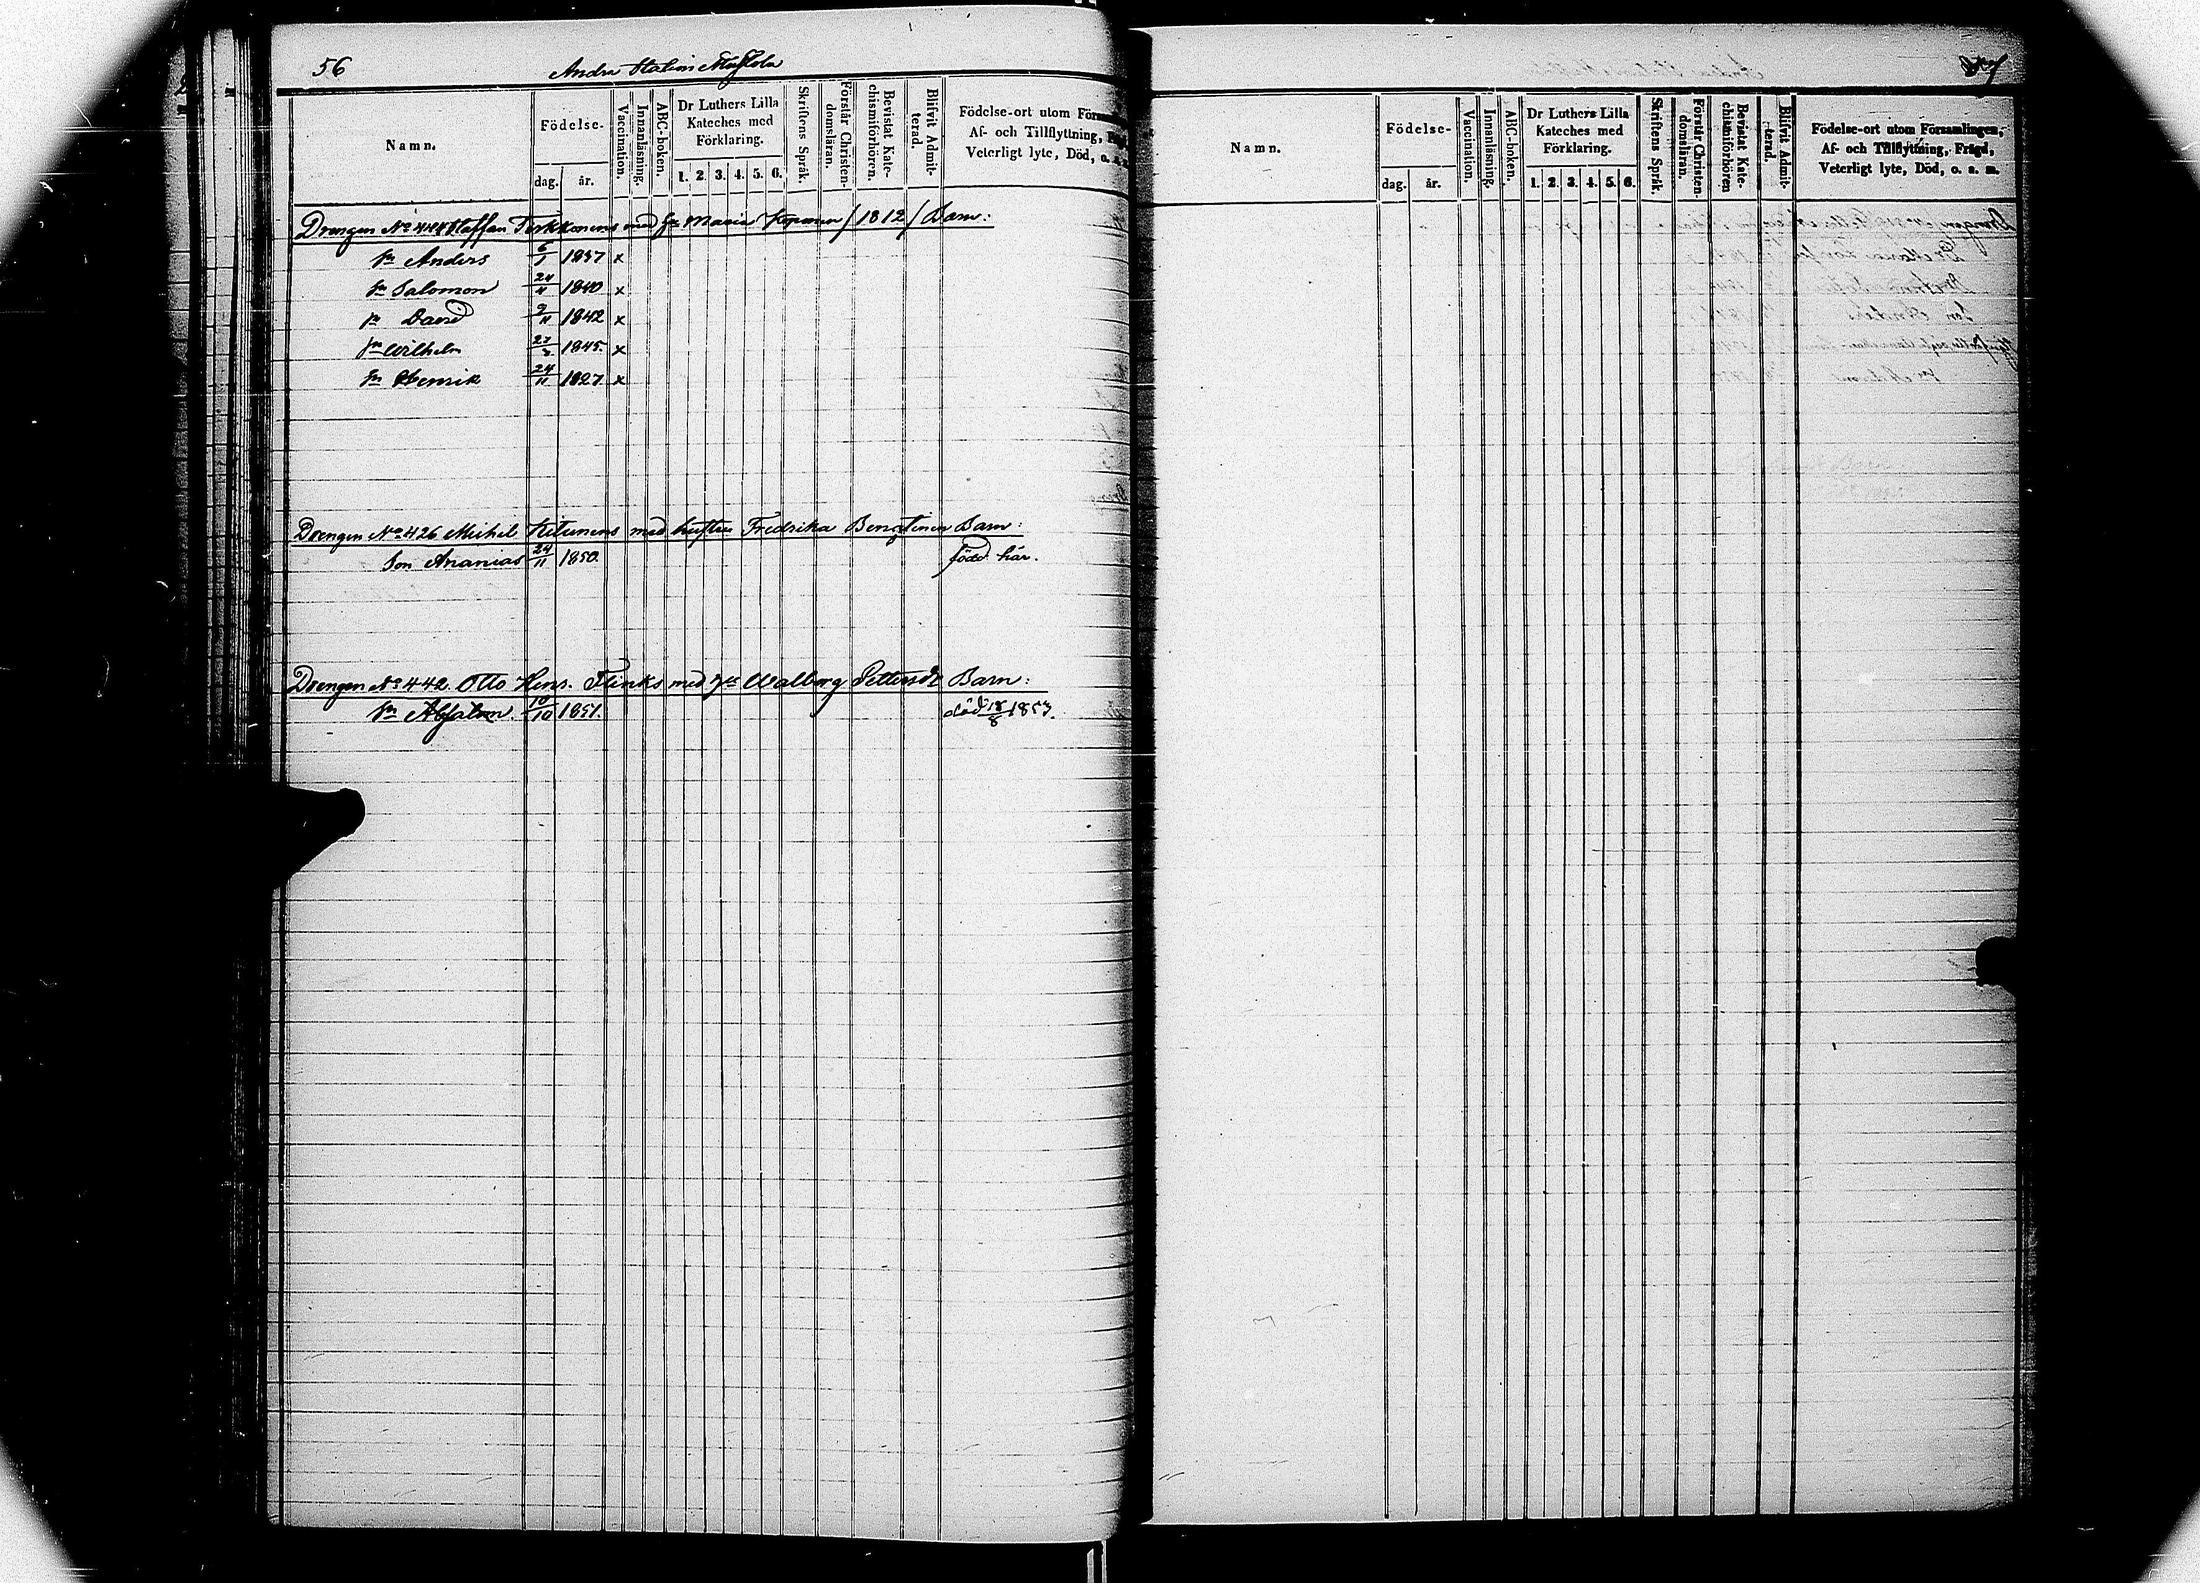 56
Andra
Namn.
Födelse-
dag. år.
Vaccination.
Innanläsning.
ABC-boken.
Dr Luthers Lilla
Kateches med
Förklaring.
1. 2. 3. 4. 5. 6.
Skriftens Språk.
Förstår Christen-
domsläran.
Bevistat Kate-
chismiförhören.
Blifvit Admit-
terad.
Födelse-ort utom
Af- och Tillflyttning,
Veterligt lyte, Död, o. a.
Drengen No 448 Staffan med Maria /1812/ Barn:
Sn Anders 6/1 1837 x
Sn Salomon 24/11 1840 x
Sn David 9/11 1842 x
Sn Wilhelm 1845. x
Sn Henrik 24/11 1827 x
Drengen No 426 Michel Kitunens med hustru Fredrika Bengtinen Barn:
Son Ananias 24/11 1850. född här.
Drengen No 442. Otto Henr. Flinks med Walborg Pettersdr Barn:
Sn Absalon. 10/10 1851. död 18/8 1853.
57
Namn.
Födelse-
dag. år.
Vaccination.
Innanläsning.
ABC-boken.
Dr Luthers Lilla
Kateches med
Förklaring.
1. 2. 3. 4. 5. 6.
Skriftens Språk.
Förstår Christen-
domsläran.
Bevistat Kate-
chismiförhören
Blifvit Admit-
terad.
Födelse-ort utom Församlingen,
Af- och Tillflyttning, Frägd,
Veterligt lyte, Död, o. a. m.